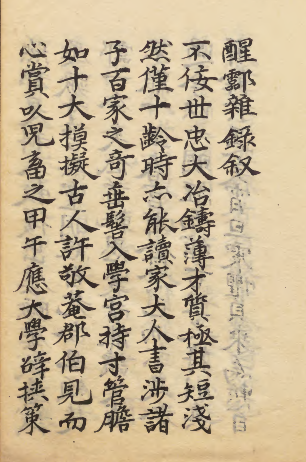 醒酆雜錄敘
不佞世忠大冶鑄薄才質極其短淺
然僅十齡時亦能讀家大人書涉諸
子百家之奇垂髫入學宮持寸管臨
如十大摸擬古人許敬菴郡伯見而
心賞以兒畜之甲午應大學辟揀策